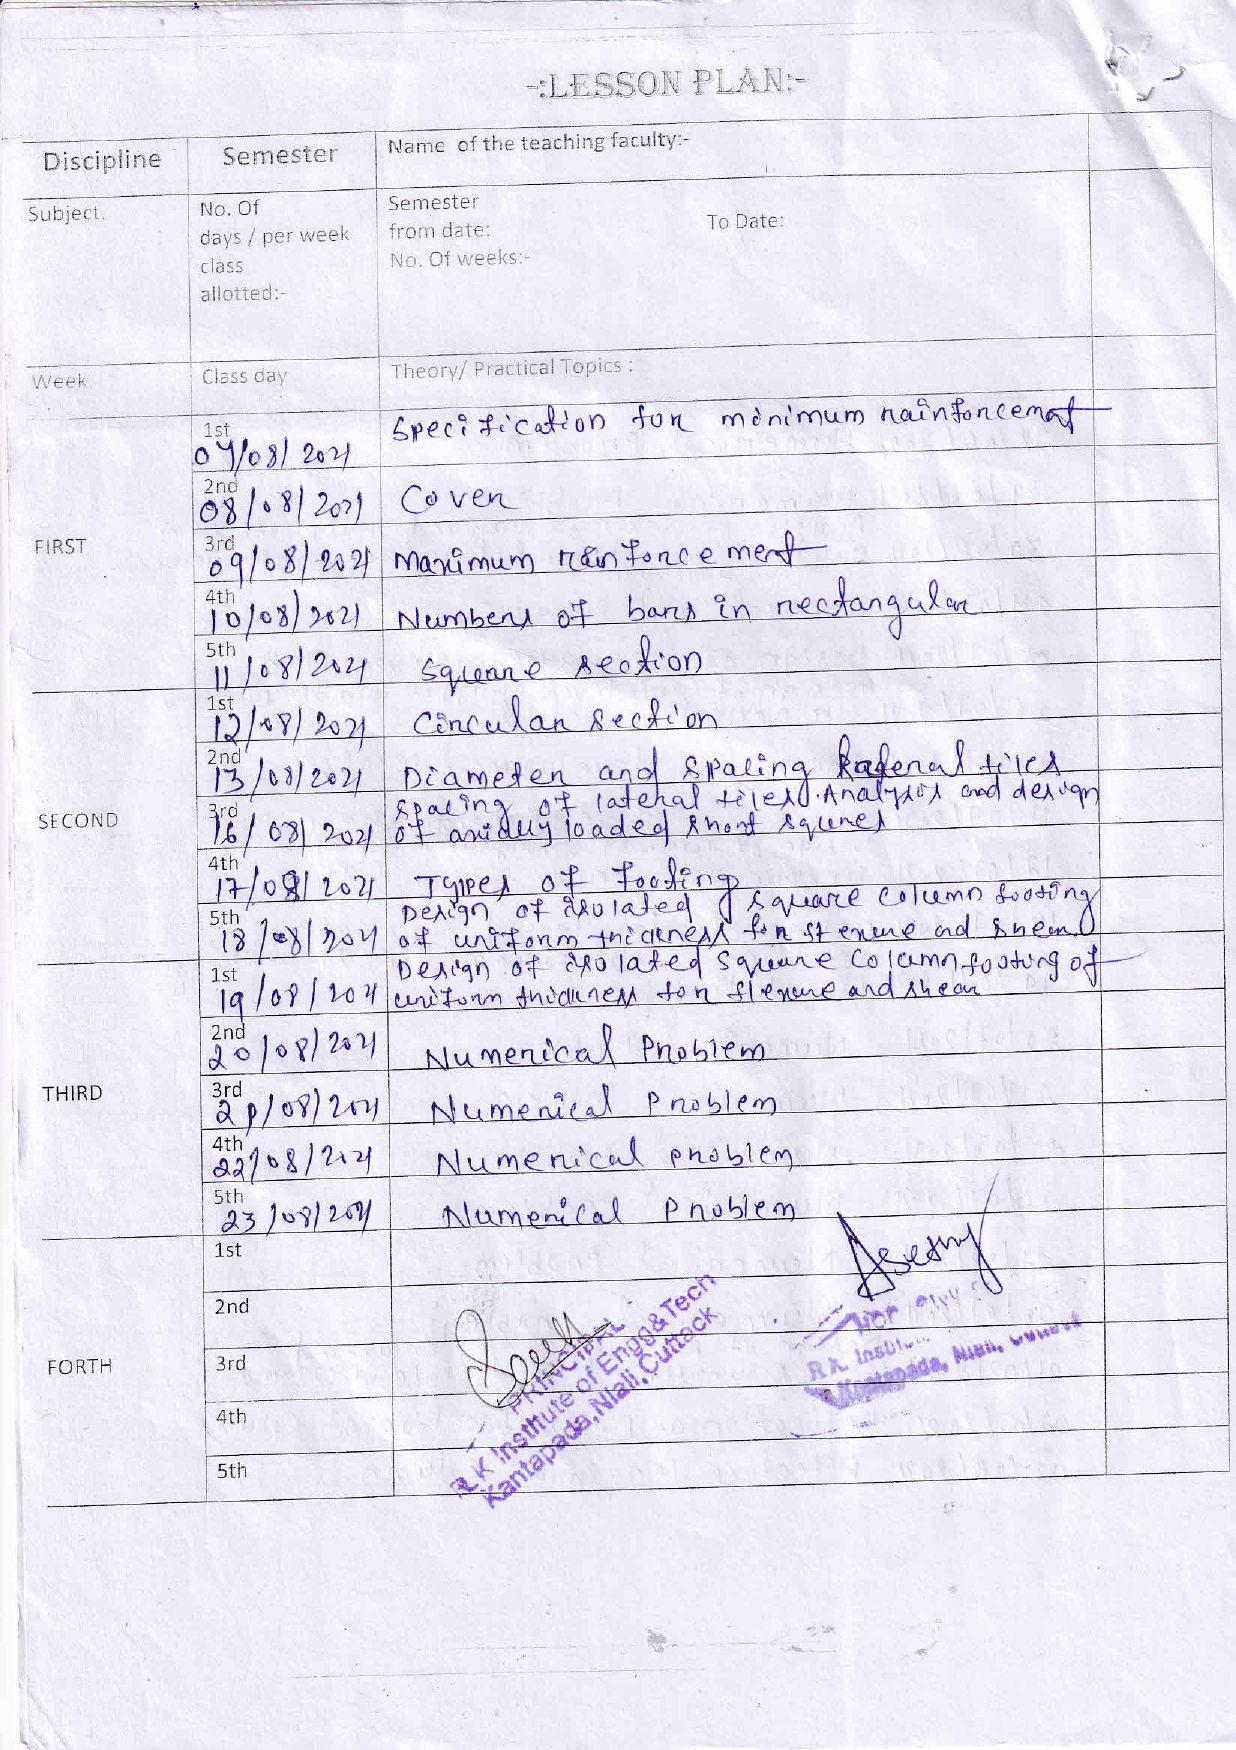 -:LESSON PLAN:-
Discipline
Semester
Name of the teaching faculty:-
Subject.
No. Of
days / per week
class
allotted:-
Semester
from date:
To Date:
No. Of weeks:-
Week
Class day
Theory/ Practical Topics :
FIRST
1st
07/08/2021
Specification for minimum rainforcement
2nd
08/08/2021
Cover
3rd
09/08/2021
Maximum rainforcement
4th
10/08/2021
Numbers of bars in rectangular
5th
11/08/2021
Square section
SECOND
1st
12/08/2021
Circular Section
2nd
13/08/2021
Diameter and Spacing
3rd
16/08/2021
Spacing of lateral Analysis and design
of loaded short
4th
17/08/2021
Types of footing
5th
18/08/2021
Design of isolated square column footing
of uniform thickness for and shear
THIRD
1st
19/08/2021
Design of isolated square column footing of
uniform thickness for flexure and shear
2nd
20/08/2021
Numerical Problem
3rd
21/08/2021
Numerical Problem
4th
22/08/2021
Numerical problem
5th
23/08/2021
Numerical Problem
FORTH
1st
2nd
3rd
4th
5th
PRINCIPAL
R K Institute of Engg&Tech
Kantapada,Niali,Cuttack
R.K. Instit
Kantapada, Niali, Cuttack